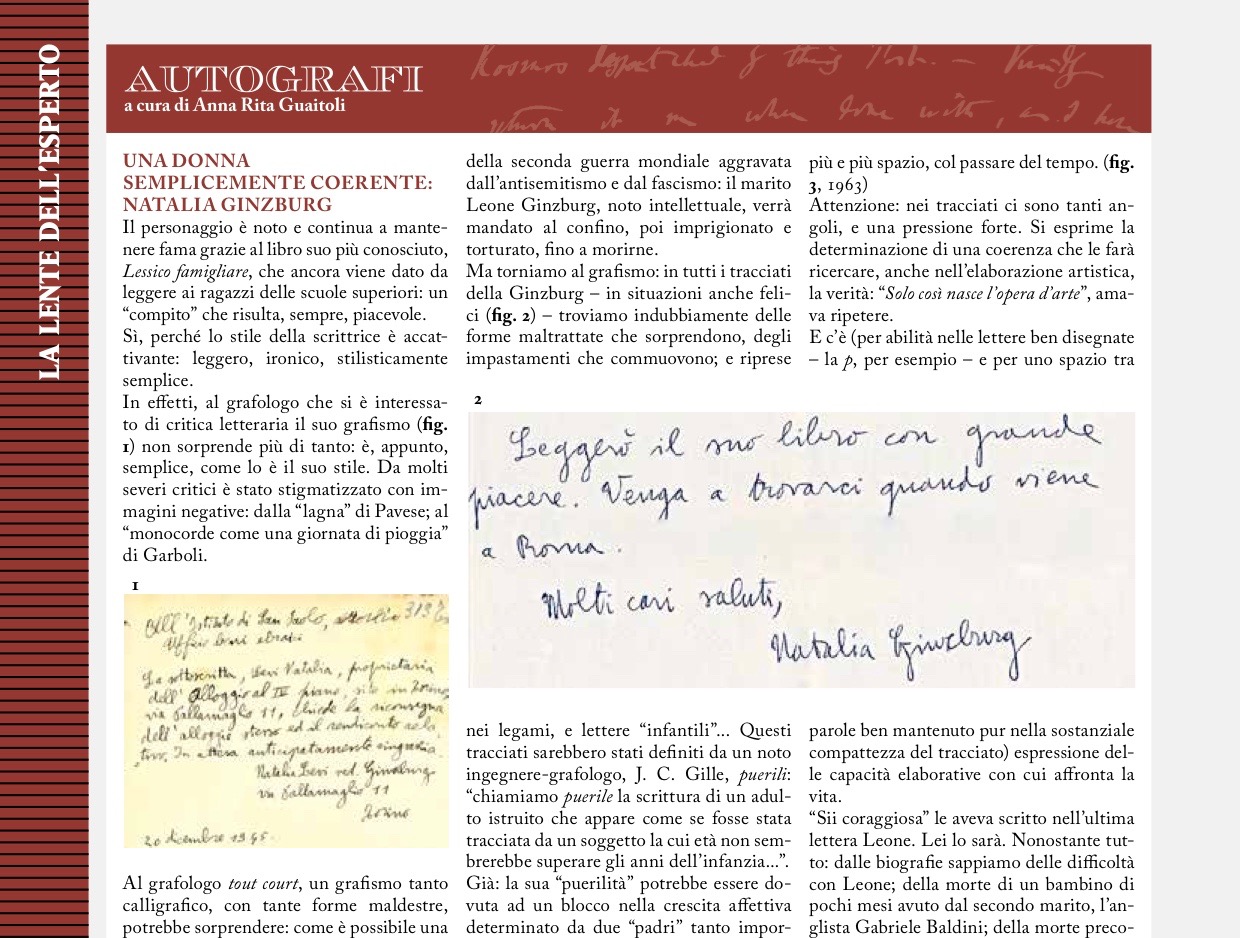 LA LENTE DELL'ESPERTO
AUTOGRAFI
a cura di Anna Rita Guaitoli
UNA DONNA
SEMPLICEMENTE COERENTE:
NATALIA GINZBURG
Il personaggio è noto e continua a mante-
nere fama grazie al libro suo più conosciuto,
Lessico famigliare, che ancora viene dato da
leggere ai ragazzi delle scuole superiori: un
“compito” che risulta, sempre, piacevole.
Sì, perché lo stile della scrittrice è accat-
tivante: leggero, ironico, stilisticamente
semplice.
In effetti, al grafologo che si è interessa-
to di critica letteraria il suo grafismo (fig.
1) non sorprende più di tanto: è, appunto,
semplice, come lo è il suo stile. Da molti
severi critici è stato stigmatizzato con im-
magini negative: dalla “lagna” di Pavese; al
“monocorde come una giornata di pioggia”
di Garboli.
1
All'Istituto di San Paolo,
Uffici beni ebraici
La sottoscritta, Levi Natalia, proprietaria
dell'alloggio al IV piano, sito in Torino,
via Pallamaglio 11, chiede la riconsegna
dell'alloggio stesso ed il rendiconto
In attesa anticipatamente ringrazia.
Natalia Levi ved. Ginzburg
via Pallamaglio 11
Torino
20 dicembre 1945.
Al grafologo tout court, un grafismo tanto
calligrafico, con tante forme maldestre,
potrebbe sorprendere: come è possibile una
della seconda guerra mondiale aggravata
dall’antisemitismo e dal fascismo: il marito
Leone Ginzburg, noto intellettuale, verrà
mandato al confino, poi imprigionato e
torturato, fino a morirne.
Ma torniamo al grafismo: in tutti i tracciati
della Ginzburg – in situazioni anche feli-
ci (fig. 2) – troviamo indubbiamente delle
forme maltrattate che sorprendono, degli
impastamenti che commuovono; e riprese
2
Leggerò il suo libro con grande
piacere. Venga a trovarci quando viene
a Roma.
Molti cari saluti,
Natalia Ginzburg
nei legami, e lettere “infantili”... Questi
tracciati sarebbero stati definiti da un noto
ingegnere-grafologo, J. C. Gille, puerili:
“chiamiamo puerile la scrittura di un adul-
to istruito che appare come se fosse stata
tracciata da un soggetto la cui età non sem-
brerebbe superare gli anni dell’infanzia...”.
Già: la sua “puerilità” potrebbe essere do-
vuta ad un blocco nella crescita affettiva
determinato da due “padri” tanto impor-
più e più spazio, col passare del tempo. (fig.
3, 1963)
Attenzione: nei tracciati ci sono tanti an-
goli, e una pressione forte. Si esprime la
determinazione di una coerenza che le farà
ricercare, anche nell’elaborazione artistica,
la verità: “Solo così nasce l’opera d’arte”, ama-
va ripetere.
E c’è (per abilità nelle lettere ben disegnate
– la p, per esempio – e per uno spazio tra
parole ben mantenuto pur nella sostanziale
compattezza del tracciato) espressione del-
le capacità elaborative con cui affronta la
vita.
“Sii coraggiosa” le aveva scritto nell’ultima
lettera Leone. Lei lo sarà. Nonostante tut-
to: dalle biografie sappiamo delle difficoltà
con Leone; della morte di un bambino di
pochi mesi avuto dal secondo marito, l’an-
glista Gabriele Baldini; della morte preco-